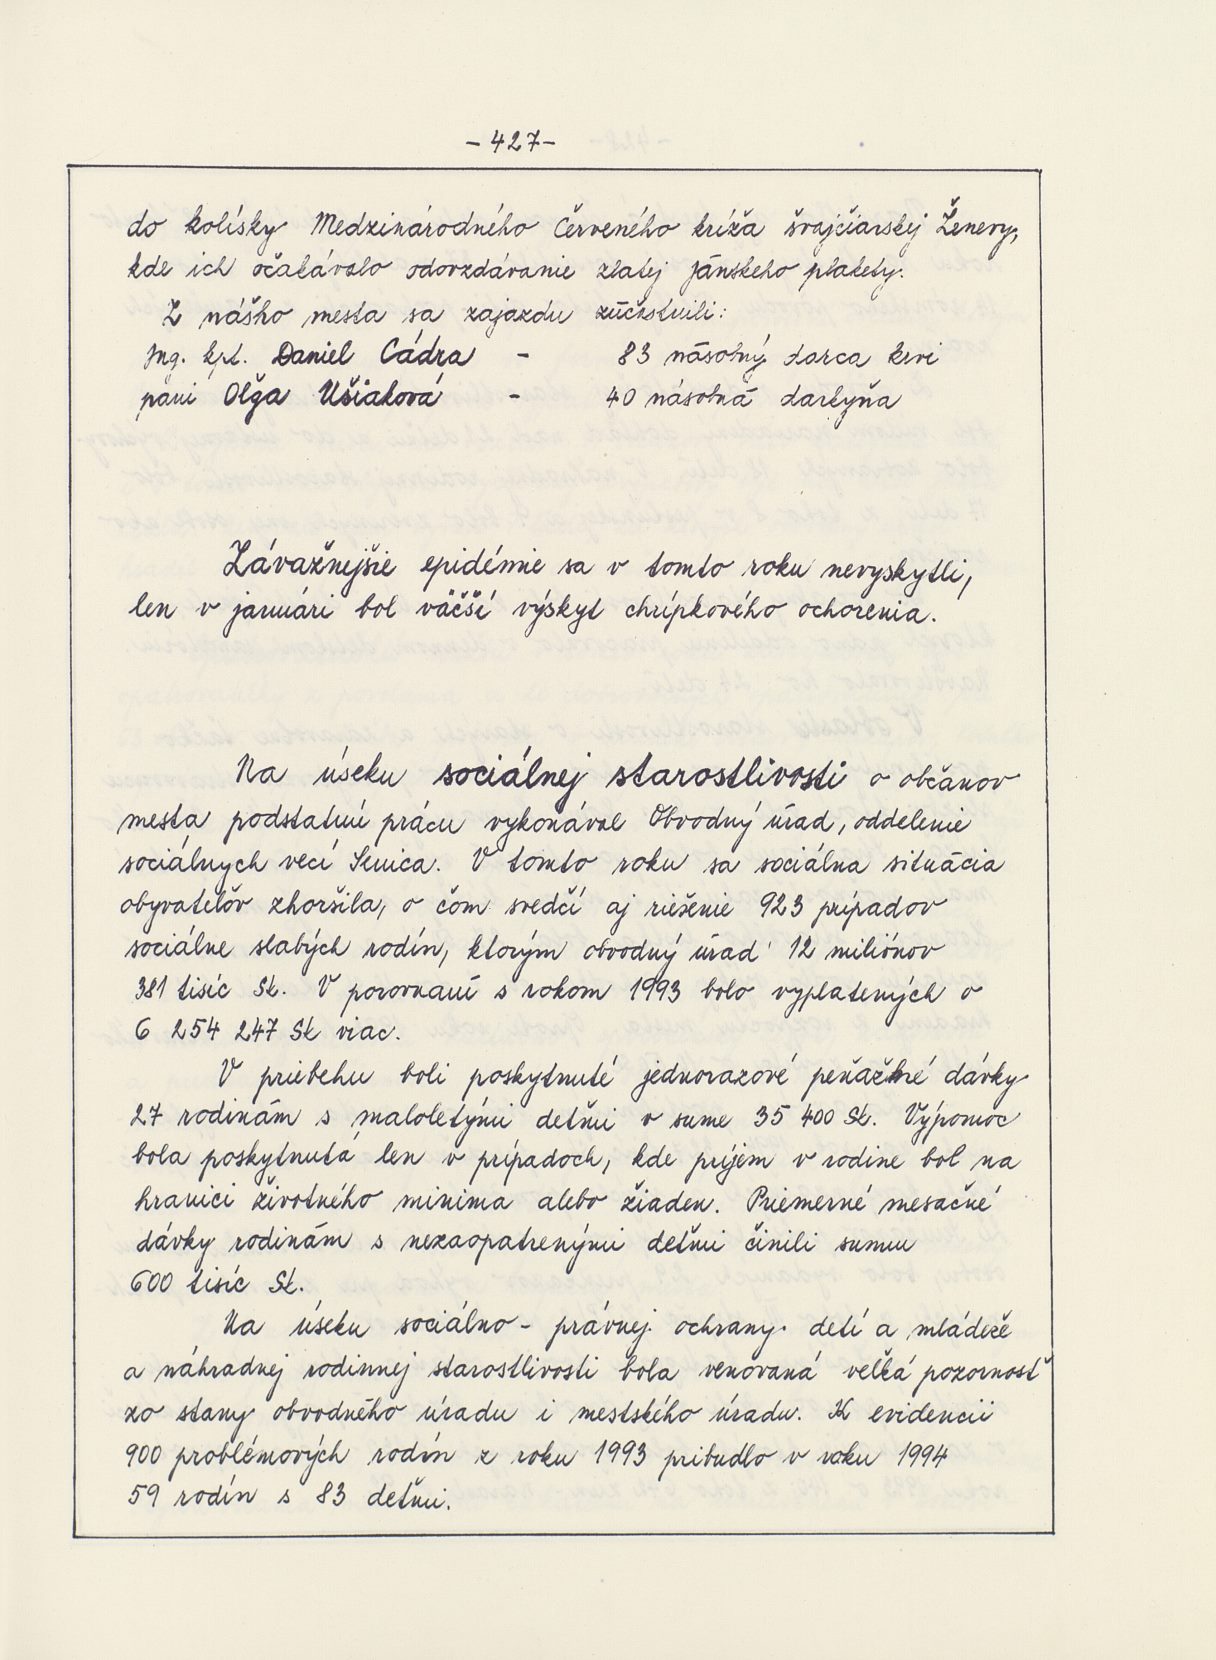 -427-
do kolísky Medzinárodného Červeného kríža švajčiarskej Ženevy,
kde ich očakávalo odovzdávanie zlatej Jánskeho plakety.
Z nášho mesta sa zajazdu zúčastnili:
Ing. kpt. Daniel Cádra - 83 násobný darca krvi
páni Oľga Ušiaková - 40 násobná darkyňa
Závažnejšie epidémie sa v tomto roku nevyskytli,
len v januári bol väčší výskyt chrípkového ochorenia.
Na úseku sociálnej starostlivosti o občanov
mesta podstatnú prácu vykonával Obvodný úrad, oddelenie
sociálnych vecí Senica. V tomto roku sa sociálna situácia
obyvateľov zhoršila, o čom svedčí aj riešenie 923 prípadov
sociálne slabých rodín, ktorým obvodný úrad 12 miliónov
381 tisíc Sk. V porovnaní s rokom 1993 bolo vyplatených o
6 254 247 Sk viac.
V priebehu boli poskytnuté jednorazové peňažné dávky
27 rodinám s maloletými deťmi v sume 35 400 Sk. Výpomoc
bola poskytnutá len v prípadoch, kde príjem v rodine bol na
hranici životného minima alebo žiaden. Priemerné mesačné
dávky rodinám s nezaopatrenými deťmi činili sumu
600 tisíc Sk.
Na úseku sociálno- právnej ochrany detí a mládeže
a náhradnej rodinnej starostlivosti bola venovaná veľká pozornosť
zo stany obvodného úradu i mestského úradu. K evidencii
900 problémových rodín z roku 1993 pribudlo v roku 1994
59 rodín s 83 deťmi.